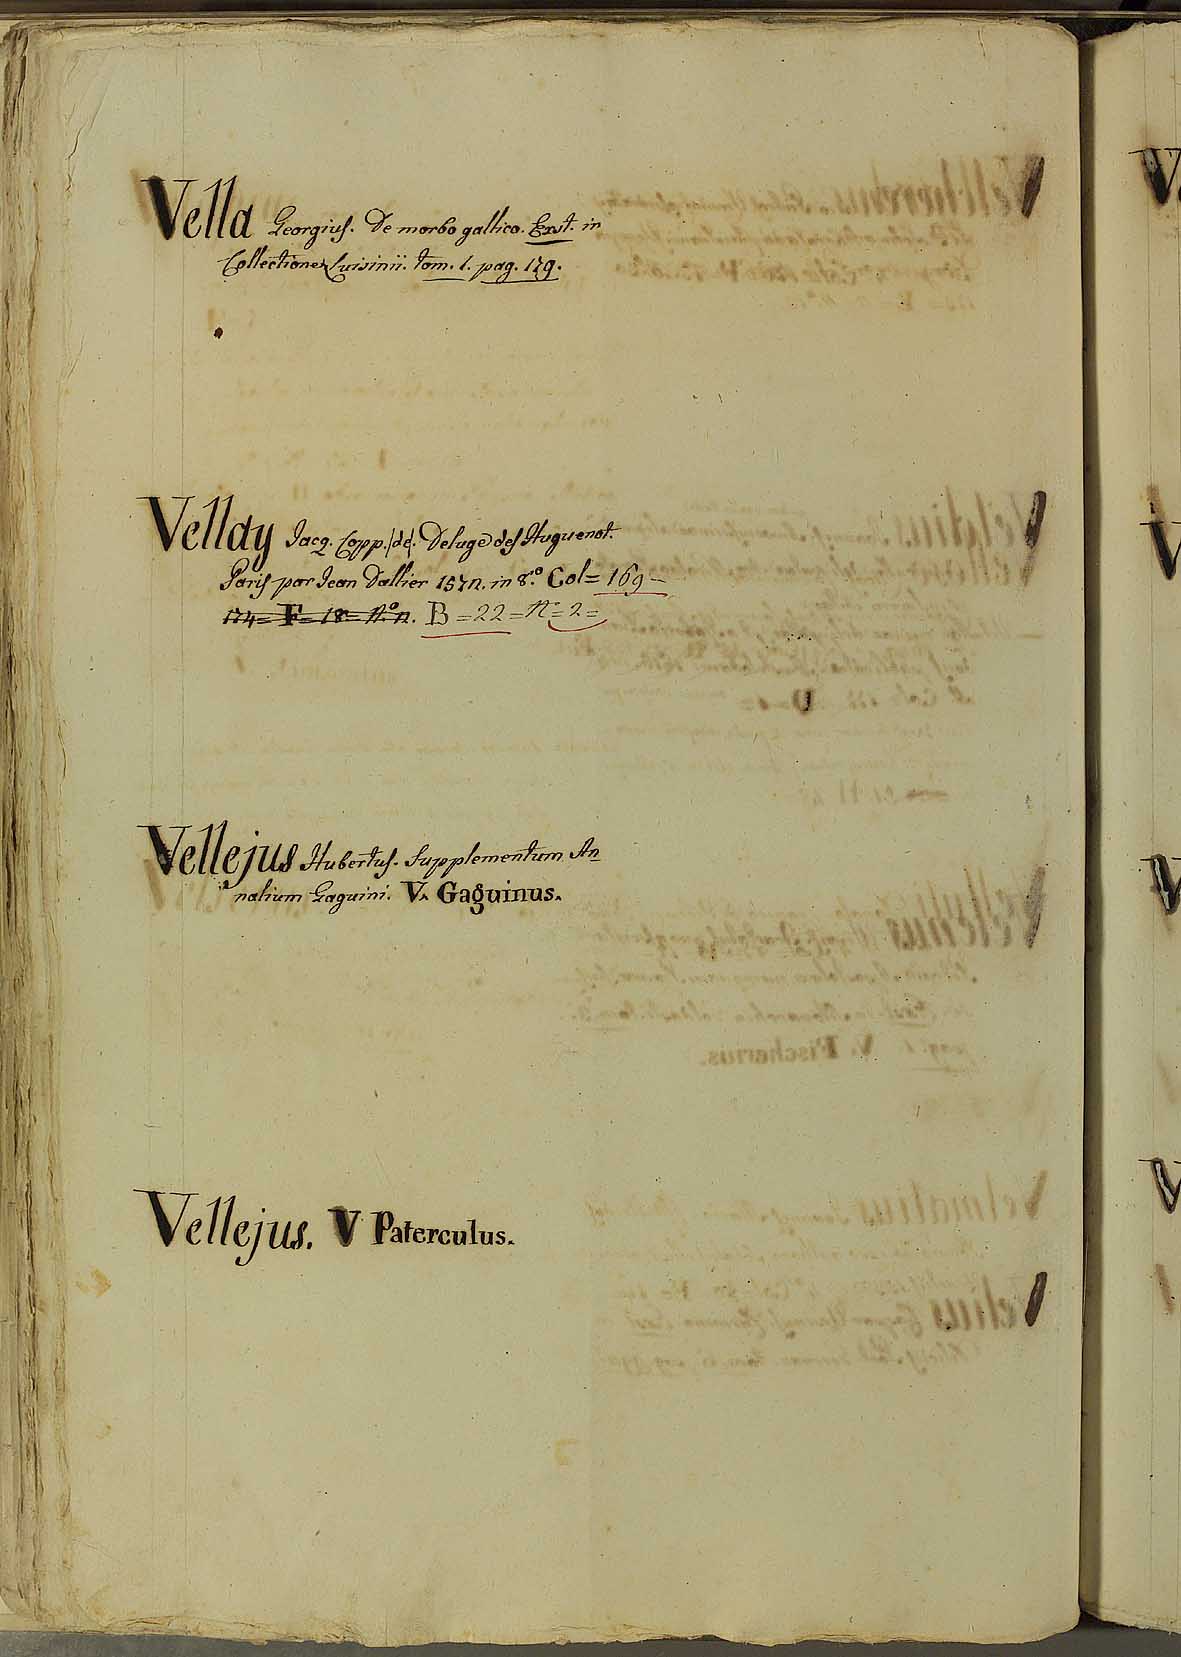 Vella Georgius. De morbo gallico. Exst. in
Collectione Luisinii. tom. 1. pag. 179.
Vellay Jacq. Copp. |de|. Deluge des Huguenot.
Paris par Jean Dallier 1572. in 8.º Col= 169=
174= F= 18= N.º 12. B =22= Nº= 2=
Vellejus Hubertus. Supplementum An
nalium Gaguini. V. Gaguinus.
Vellejus. V Paterculus.